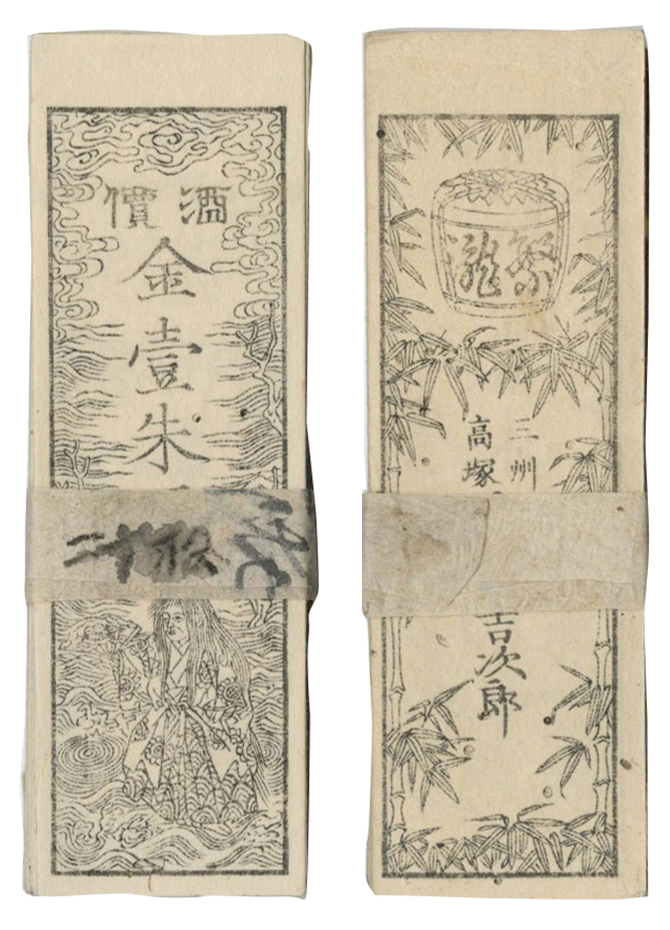 酒價
金壹朱
三州
高塚
吉次郎